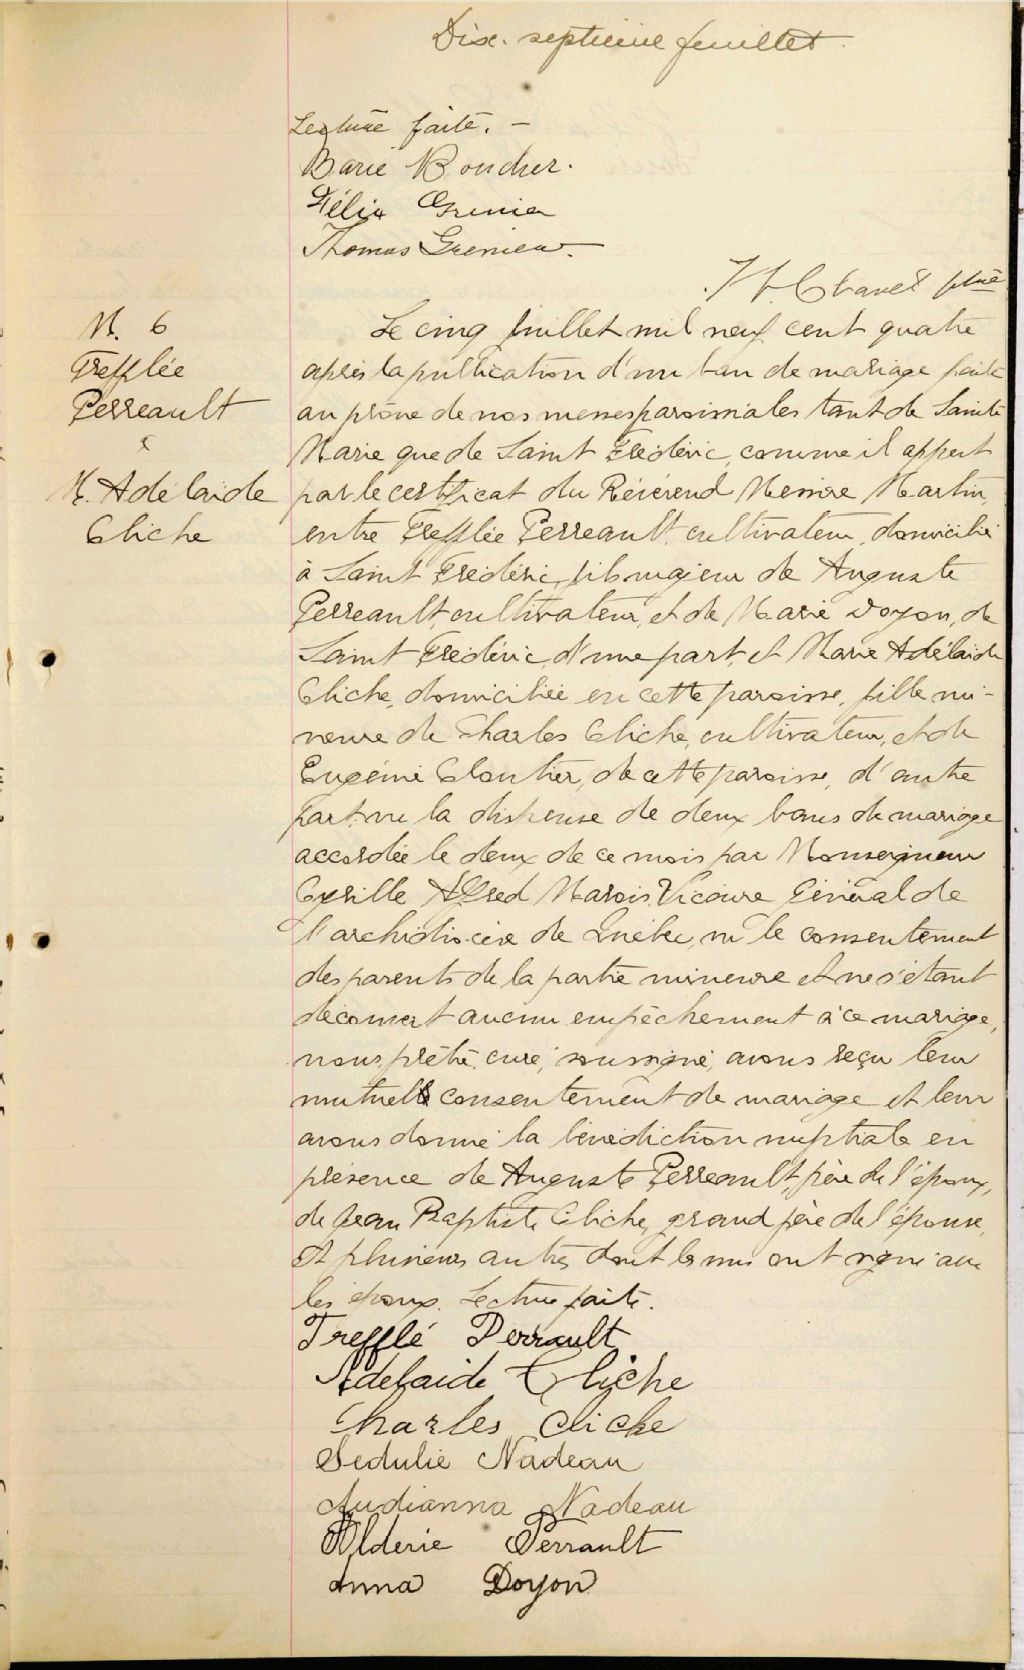 Dix-septième feuillet.
Lecture faite. -
Marie Boucher.
Félix Grenier
Thomas Grenier.
ptre
M. 6
Trefflée
Perreault
&
M. Adélaide
Cliche
Le cinq Juillet mil neuf cent quatre
après la publication d'un ban de mariage faite
au prône de nos messes paroissiales tant de Sainte
Marie que de Saint Frédéric, comme il appert
par le certificat du Révérend Messire Martin,
entre Trefflée Perreault, cultivateur, domicilié
à Saint Frédéric, fils majeur de Auguste
Perreault, cultivateur, et de Marie Doyon, de
Saint Frédéric, d'une part, et Marie Adélaide
Cliche, domiciliée en cette paroisse, fille mi-
neure de Charles Cliche, cultivateur, et de
Eugénie Cloutier, de cette paroisse, d'autre
part: vu la dispense de deux bans de mariage
accordée le deux de ce mois par Monseigneur
Cyrille Alfred Marois, Vicaire Général de
l'archidiocèse de Québec, vu le consentement
des parents de la partie mineure et ne s'étant
découvert aucun empêchement à ce mariage,
nous, prêtre, curé, soussigné, avons reçu leur
mutuel consentement de mariage et leur
avons donné la bénédiction nuptiale en
présence de Auguste Perreault, père de l'époux,
de Jean Baptiste Cliche, grand père de l'épouse,
et plusieurs autres dont les uns ont signé avec
les époux. Lecture faite.
Trefflé Perrault
Adelaide Cliche
Charles Cliche
Sedulie Nadeau
Audianna Nadeau
Alderie Perrault
Anna Doyon